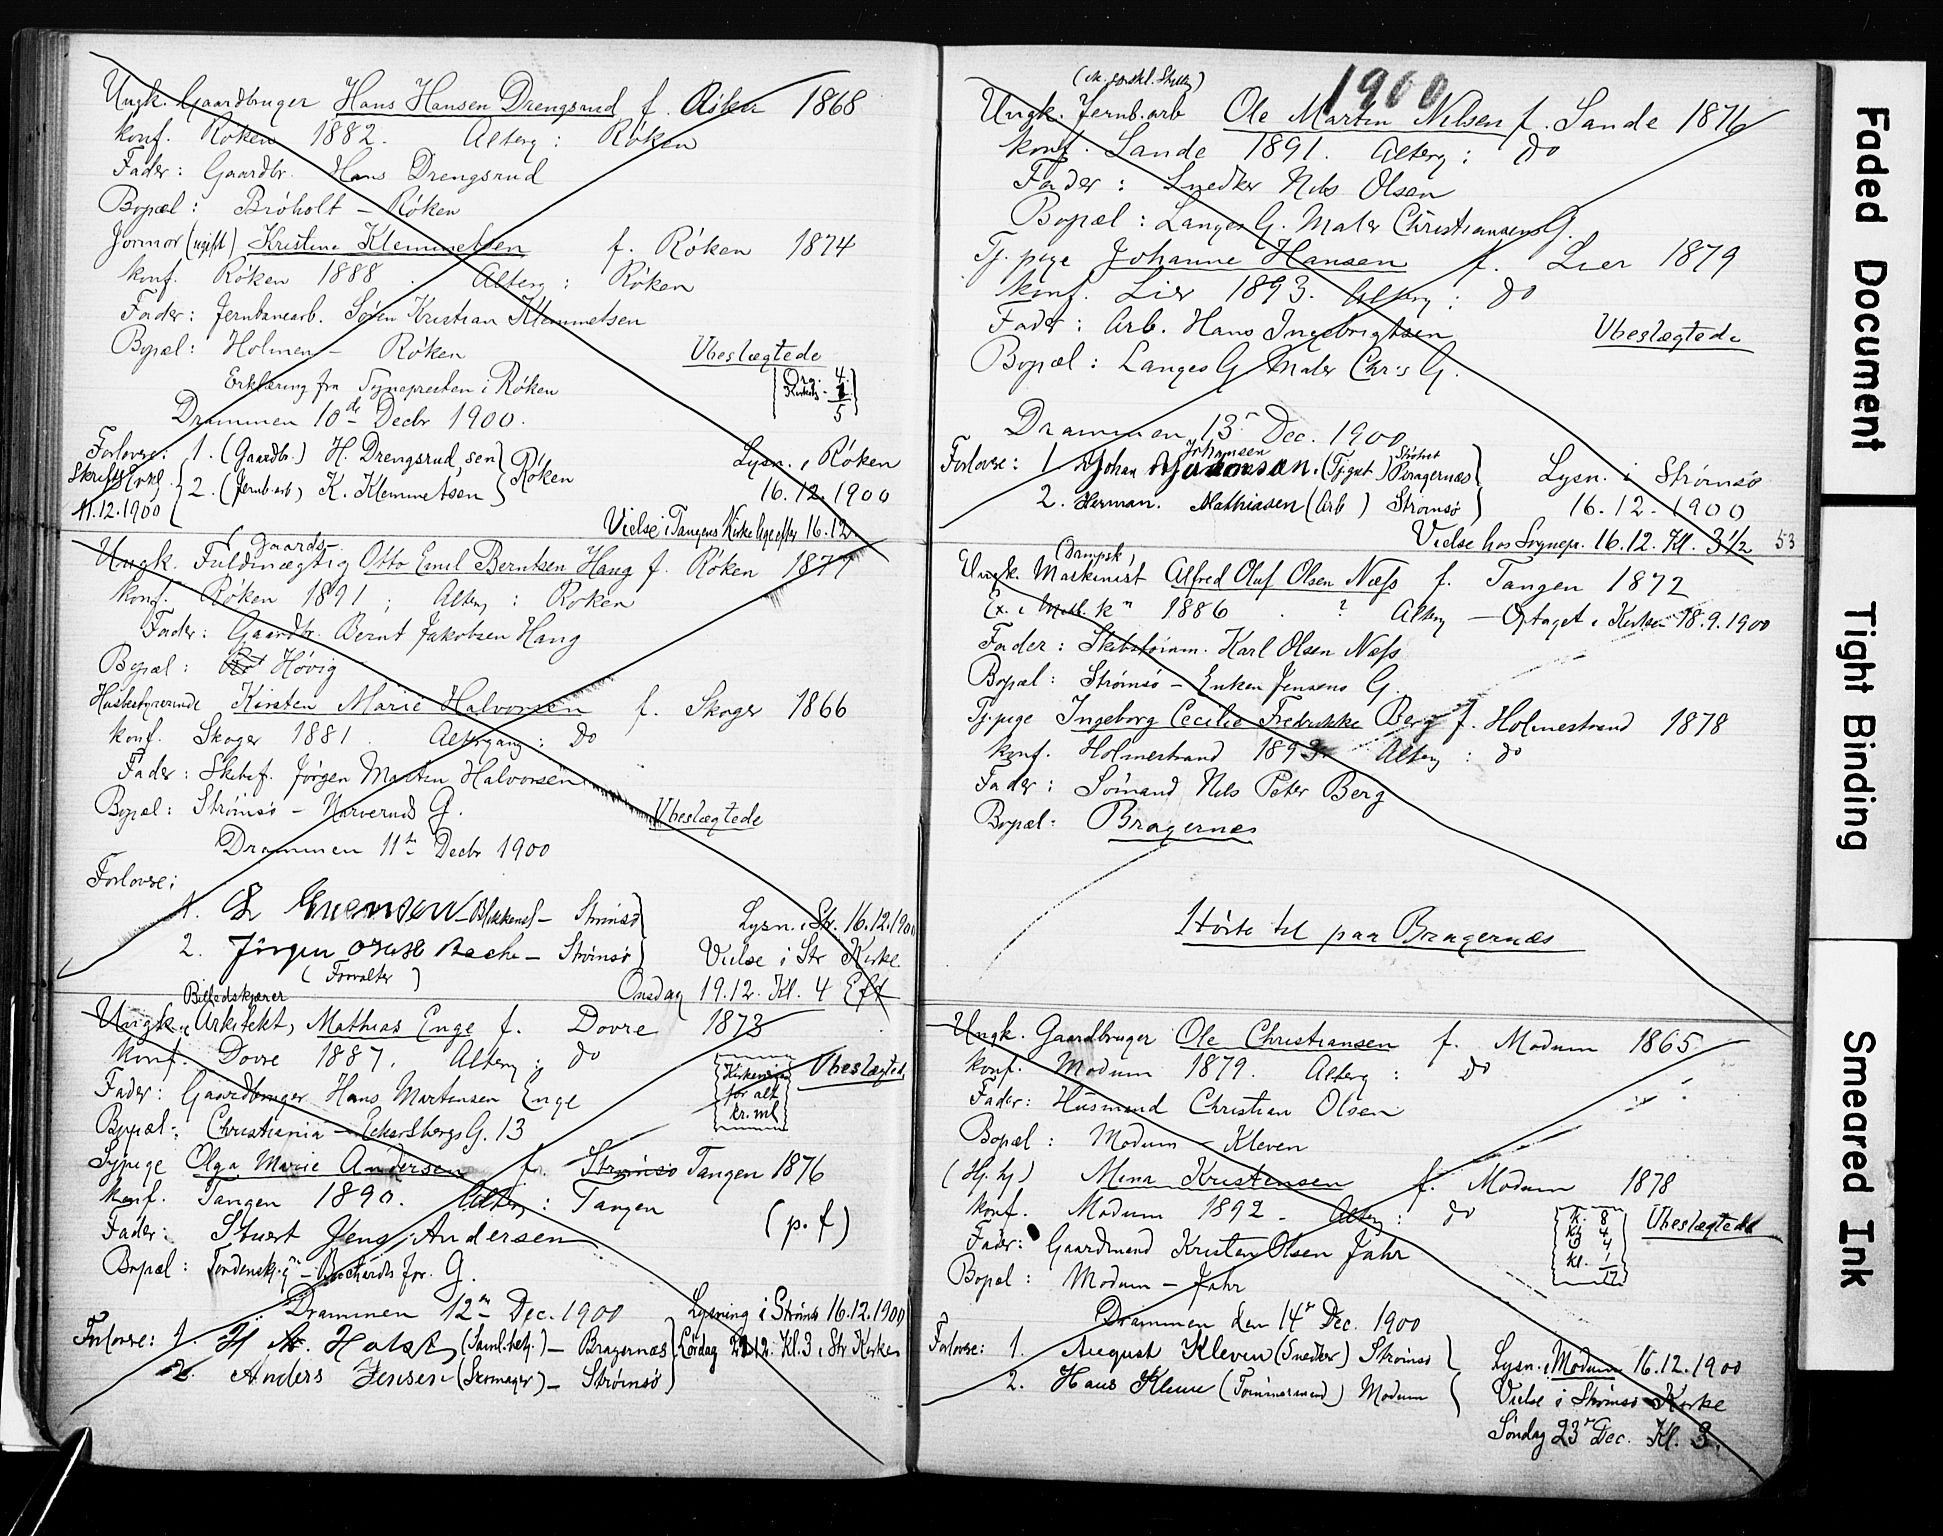 Ungk. Gaardbruger Hans Hansen Drengsrud f. Röken 1868
konf. Röken 1882. Alterg: Röken
Fader: Gaardbr. Hans Drengsrud
Bopæl: Bröholt - Röken
Jormor (ugift) Kristine Klemmetsen f. Röken 1874
konf. Röken 1888. Alterg: Röken
Fader: Jernbanearb. Sören Kristian Klemmetsen
Bopæl: Holmen - Röken Ubeslægtede
Erklæring fra Sognepresten i Röken
Org. 4
1
5
Drammen 10de Decbr 1900.
Forlovere: 1. (Gaardbr.) H. Drengsrud, sen Röken Lysn. i Röken
2. (Jernb.arb) K. Klemmetsen 16.12.1900
11.12.1900
Vielse i Tangens Kirke lige efter 16.12
Gaards-
Ungk. Fuldmægtig Otto Emil Berntsen Haug f. Röken 1877
konf. Röken 1891; Alterg: Röken
Fader: Gaardbr. Bernt Jakobsen Haug
Bopæl: Hövig
Husbestyrerinde Kirsten Marie Halvorsen f. Skoger 1866
konf. Skoger 1881 Altergang: Do
Fader: Skibsf. Jörgen Martin Halvorsen
Bopæl: Strömsö - Narveruds G. Ubeslægtede
Drammen 11te Decbr 1900
Forlovere:
1. Strömsö Lysn. i Str. 16.12.1900
2. Jörgen Bache - Strömsö Vielse i Str Kirke
(Forvalter) Onsdag 19.12. Kl. 4 Eft
Billedskjærer
Ungk. Arkitekt, Mathias Enge f. Dovre 1873
konf. Dovre 1887. Alterg: do
Kirken
for alt
kr. ml
Ubeslægtede
Fader: Gaardbruger Hans Martensen Enge
Bopæl: Christiania - Eckersbergs G. 13
Sypige Olga Marie Andersen f. Strömsö Tangen 1876
konf. Tangen 1890. Alterg: Tangen
Fader: Stuert Jens Andersen (p. f)
Bopæl: Tordensk. g - G.
Drammen 12te Dec. 1900 Lysning i Strömsö 16.12.1900
Forlovere: 1. H Holst - Bragernæs Lördag 12. Kl. 3 i Str Kirke
2. Anders Jensen (Skomager) - Strömsö
1900
Ungk. Jernb.arb Ole Martin Nilsen f. Sande 1876
konf. Sande 1891. Alterg: do
Fader: Snedker Nils Olsen
Bopæl: Langes G. Maler Christiansens G.
Tj. pige Johanne Hansen f. Lier 1879
konf. Lier 1893. Alterg: do
Fader: Arb. Hans Ingebrigtsen Ubeslægtede
Bopæl: Langes G Maler Chr's G.
Drammen 13de Dec. 1900
Johansen
Forlovere: 1 Johan Bragernæs Lysn. i Strömsö
2. Herman. Mathiasen (Arb) Strömsö 16.12.1900
Vielse hos Sognepr. 16.12. Kl. 3 1/2
53
(Dampsk)
Ungk. Maskinist Alfred Oluf Olsen Næss f. Tangen 1872
Ex. i Met. k. 1886 ? Alterg - Optaget i Kirken 18.9.1900
Fader: Skibstömm. Karl Olsen Næss
Bopæl: Strömsö - Enken Jensens G.
Tj. pige Ingeborg Cecilie Fredrikke Berg f. Holmestrand 1878
konf. Holmestrand 1893. Alterg: do
Fader: Sömand Nils Peter Berg
Bopæl: Bragernæs
Hörte til paa Bragernæs
Ungk. Gaardbruger Ole Christiansen f. Modum 1865
konf. Modum 1879. Alterg: do
Fader: Husmand Christian Olsen
Bopæl: Modum - Kleven
(Hj. hj) Mina Kristensen f. Modum 1878
konf. Modum 1892 - Alterg: do
K. 8
Kl. 4
O 4
kl. 1
17
Ubeslægtede
Fader: Gaardmand Kristen Olsen Jahr
Bopæl: Modum - Jahr
Drammen den 14de Dec. 1900
Forlovere: 1. August Kleven (Snedker) Strömsö Lysn. i Modum 16.12.1900
2. Hans Kleven (Tömmermand) Modum Vielse i Strömsö Kirke
Söndag 23de Dec. Kl. 3.
Faded Document
Tight Binding
Smeared Ink